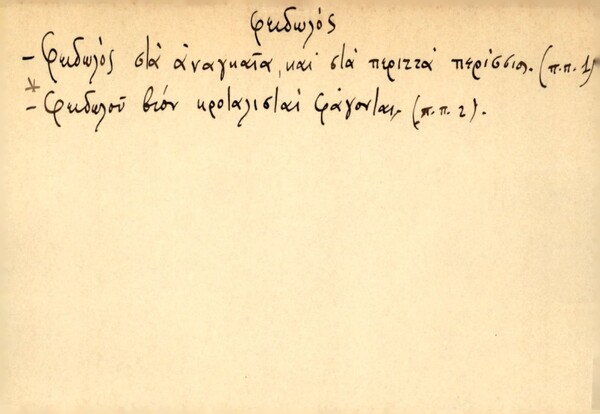 φειδωλός
- Φειδωλὸς στὰ ἀναγκαῖα, καὶ στὰ περιττὰ περίσσιος. (π.π. 1)
* - Φειδωλοῦ βιὸν κροταλισταὶ φάγονται. (π.π. 2).